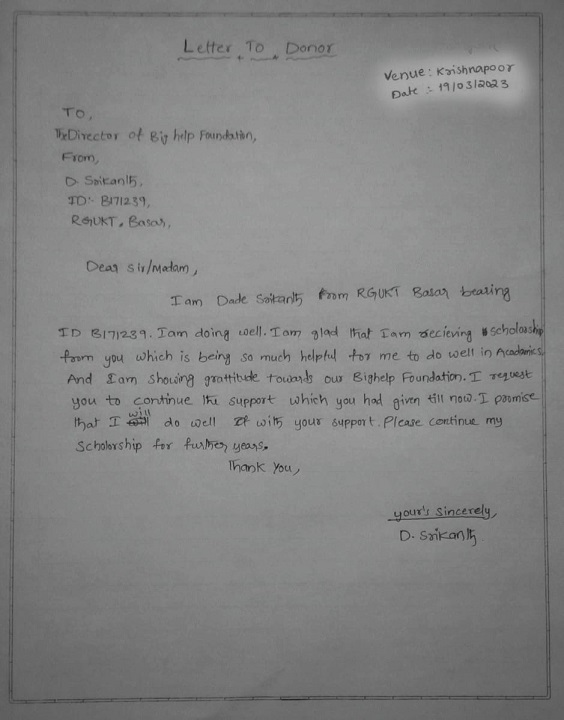 Letter To Donor
Venue : Krishnapoor
Date : 19/03/2023
TO,
The Director of Big help Foundation,
From,
D. Srikanth,
ID:- B171239,
RGUKT, Basar,
Dear Sir/Madam,
I am Dade Srikanth from RGUKT Basar bearing
ID B171239. I am doing well. I am glad that I am recieving scholarship
from you which is being so much helpful for me to do well in Academics.
And I am showing grattitide towards our Bighelp Foundation. I request
you to continue the support which you had given till now. I promise
that I will do well with your support. Please continue my
Scholarship for further years.
Thank you,
your's sincerely,
D. Srikanth